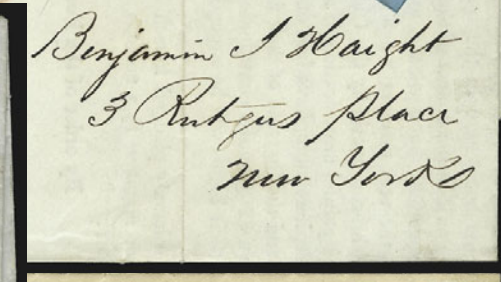 Benjamin I Haight
3 Rutgers place
New York